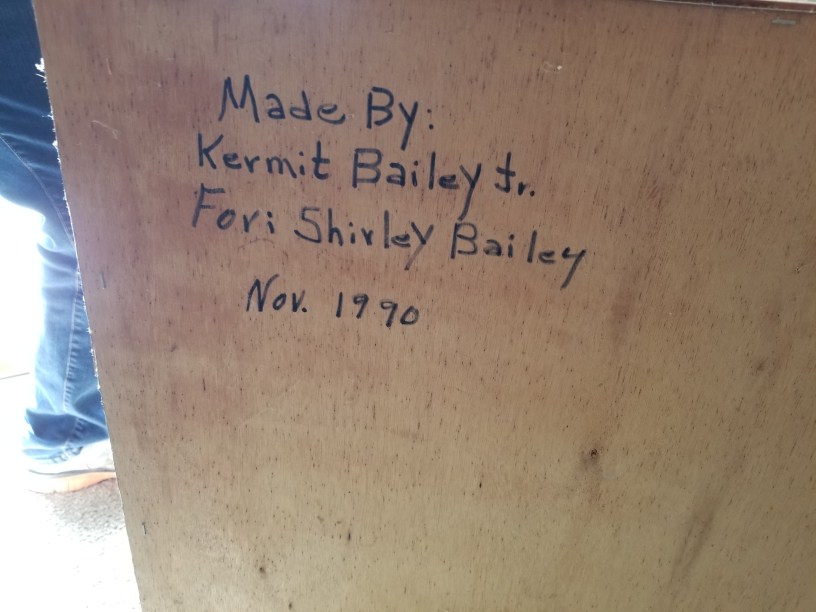 Made By:
Kermit Bailey Jr.
For: Shirley Bailey
Nov. 1990